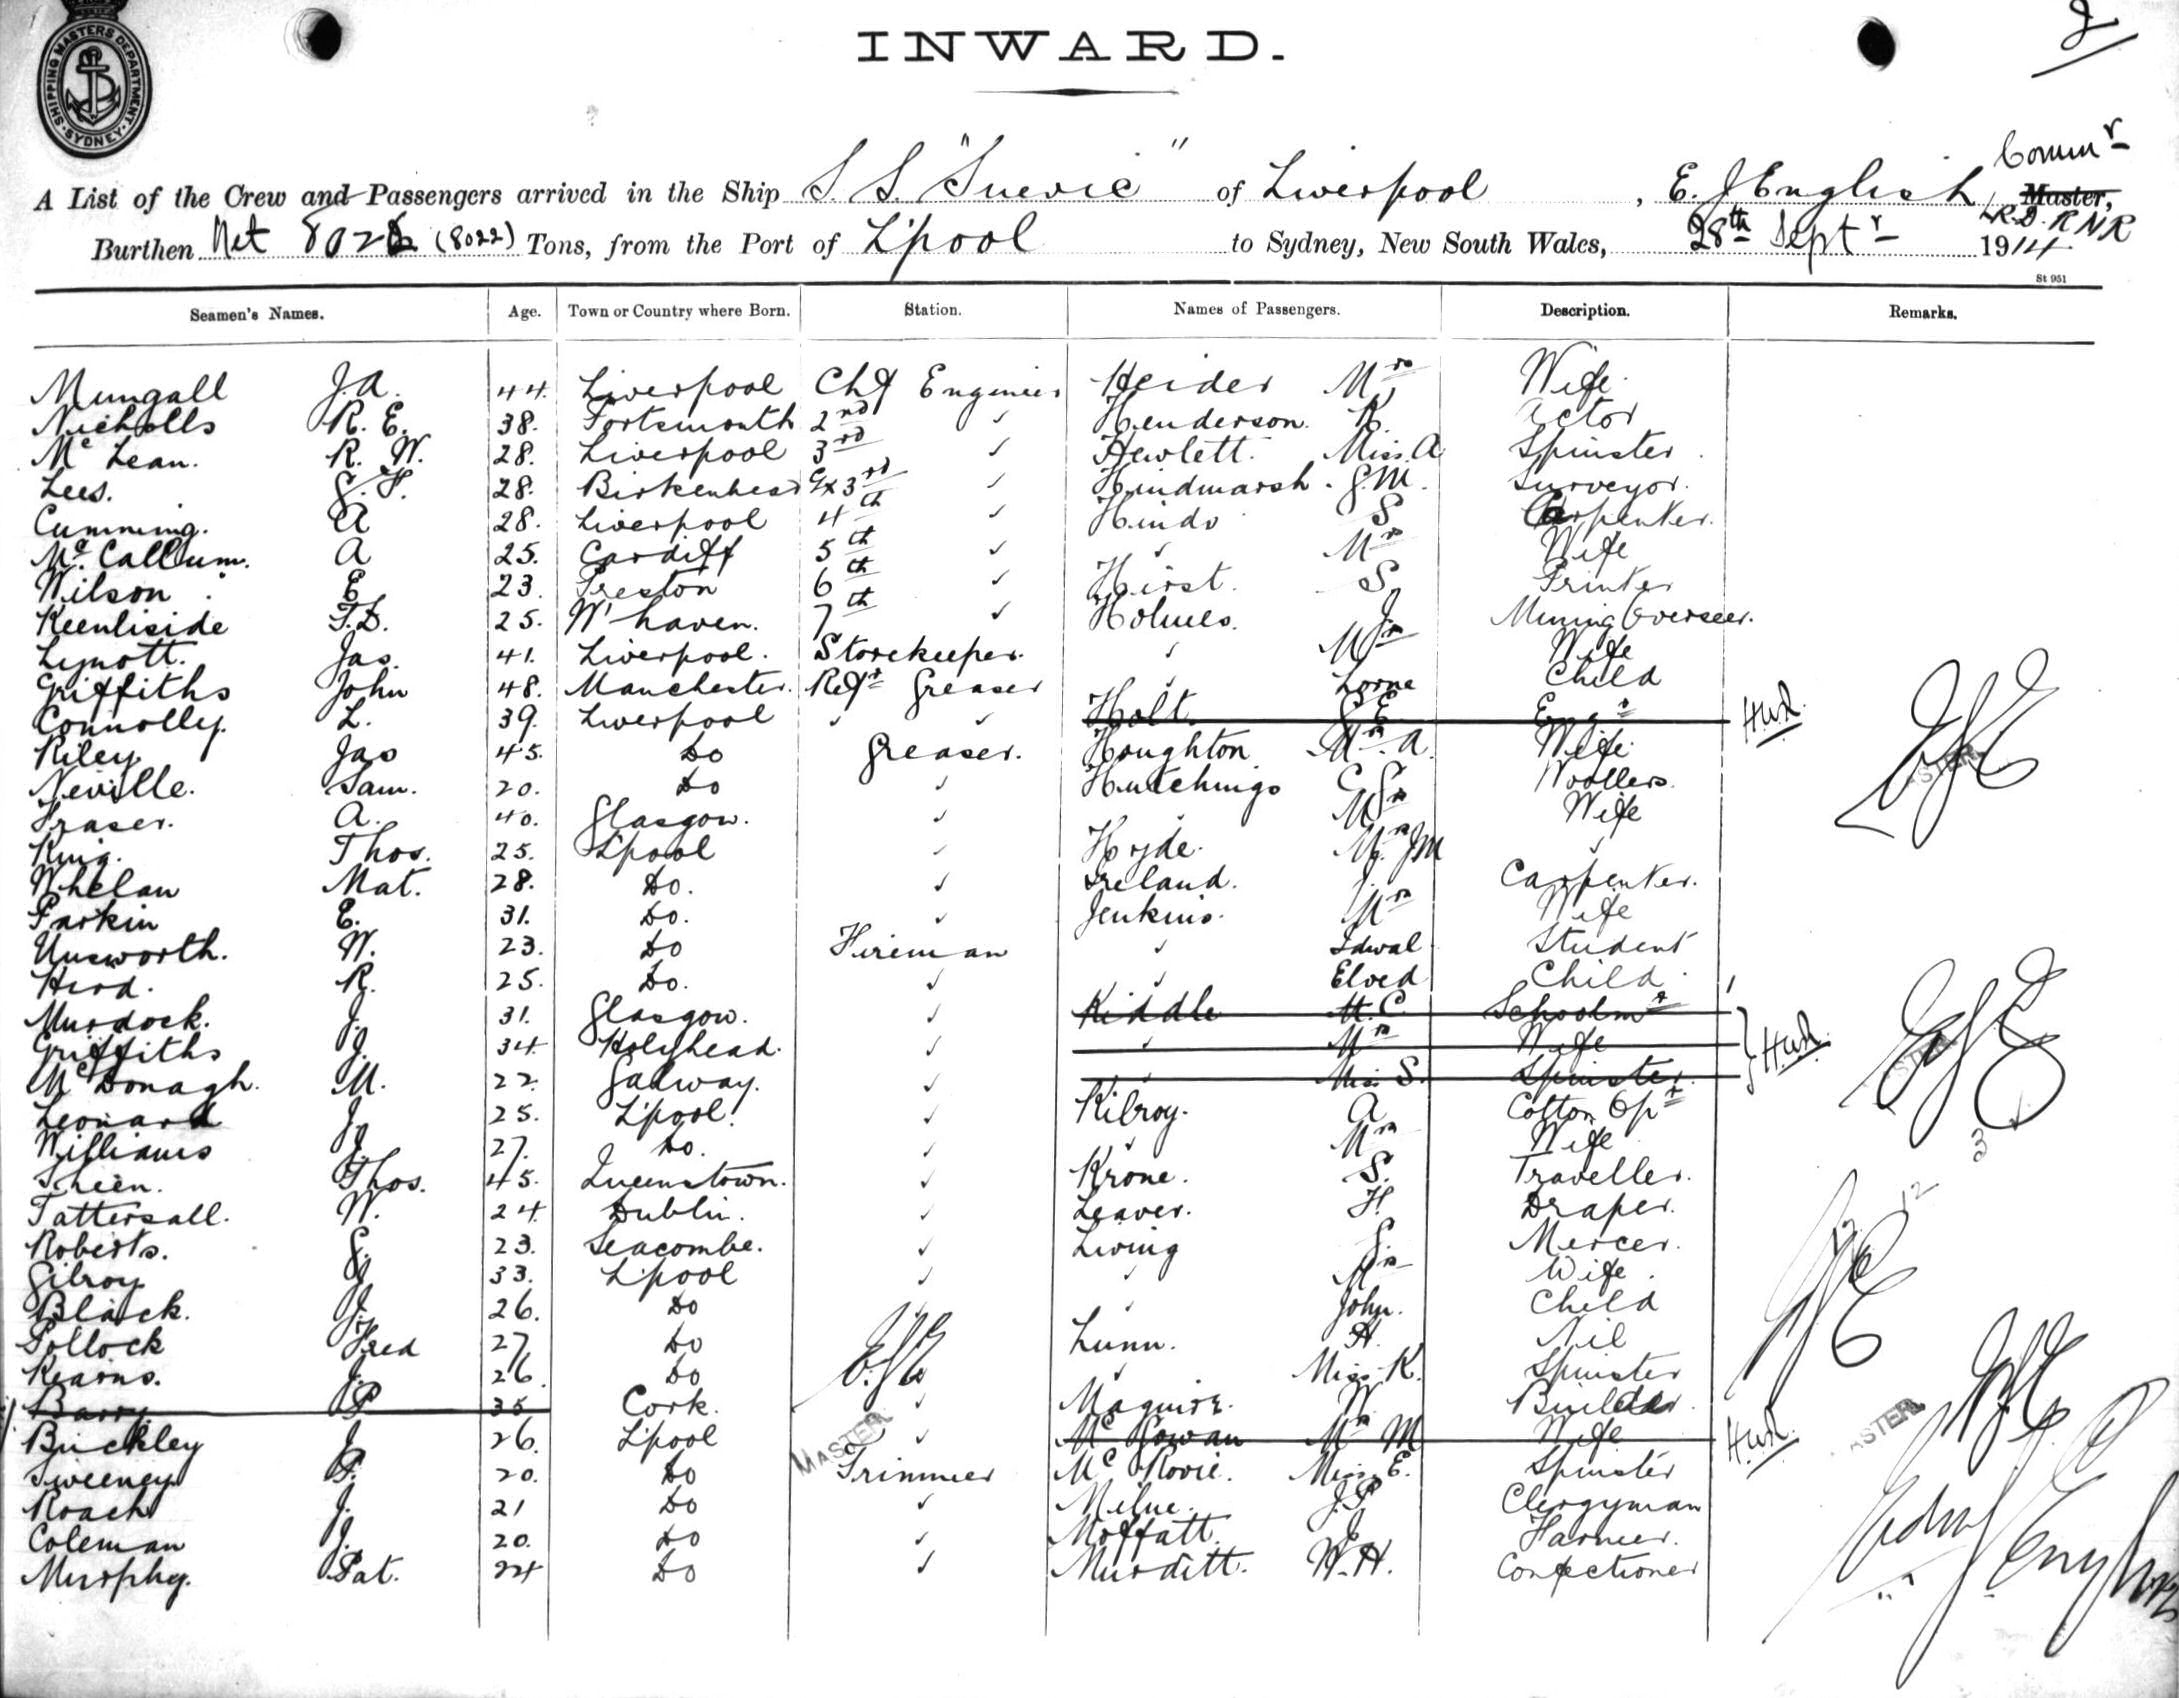 2
SHIPPING MASTERS DEPARTMENT · SYDNEY ·
INWARD.
Comm r
A List of the Crew and Passengers arrived in the Ship S. S. "Suevic" of Liverpool , E. J English Master,
R.D. R N R
Burthen Net (8022) Tons, from the Port of L'pool to Sydney, New South Wales, 28th Sept r 1914
St 951
Seamen's Names. Age. Town or Country where Born. Station. Names of Passengers. Description. Remarks.
Mungall J. A. 44. Liverpool Chf Engineer Heider Mrs Wife.
Nicholls R. E. 38. Portsmouth 2nd ✓ Henderson. R. Actor
Mc Lean. R. W. 28. Liverpool 3rd ✓ Hewlett. Miss A Spinster.
Lees. G. H. 28. Birkenhead Ex 3rd ✓ Hindmarsh. G. M. Surveyor.
Cumming. A 28. Liverpool 4th ✓ Hinds S Carpenter.
Mc Callum. A 25. Cardiff 5th ✓ ✓ Mrs Wife
Wilson. E. 23. Preston 6th ✓ Hirst. S. Printer
Keenliside T. D. 25. W'haven. 7th ✓ Holmes. J. Mining Overseer.
Lynott. Jas. 41. Liverpool. Storekeeper. ✓ Mrs Wife
Griffiths John 48. Manchester. Refr Greaser ✓ Lorne Child
Connolly. L. 39. Liverpool ✓ ✓ Holt. G E Engr H.W.L.
Riley. Jas 45. Do Greaser. Houghton Mrs. A. Wife.
Neville. Sam. 20. Do ✓ Hutchings C G Woollers.
Fraser. A. 40. Glasgow. ✓ ✓ Mrs Wife
King. Thos. 25. L'pool ✓ Hyde. Mrs. J M ✓
Whelan Mat. 28. Do. ✓ Ireland. J. Carpenter.
Parkin E. 31. Do. ✓ Jenkins. Mrs Wife
Unsworth. W. 23. Do Fireman ✓ Idwal Student
Hird. R. 25. Do. ✓ ✓ Elved Child.
Murdock. J. 31. Glasgow. ✓ Kiddle H. C. Schoolmr
Griffiths J. 34 Holyhead. ✓ ✓ Mrs Wife H.W.L.
Mc Donagh. M. 22. Galway. ✓ ✓ Miss S. Spinster.
Leonard J. 25. L'pool. ✓ Kilroy. A. Cotton Opr
Williams J. 27. Do. ✓ ✓ Mrs Wife
Sheen. Thos. 45. Queenstown. ✓ Krone. S. Traveller.
Tattersall. W. 24. Dublin. ✓ Leaver. H. Draper.
Roberts. G. 23. Seacombe. ✓ Living G. Mercer.
Gilroy J 33. L'pool ✓ ✓ Mrs Wife.
Black. J. 26. Do ✓ John. Child
Pollock Fred 27 Do Lunn. H. Nil
Kearns. J. 26. Do E.J.E ✓ Miss K. Spinster
Barry P 35 Cork. ✓ Maguire. W. Builder.
Buckley J 26. L'pool ✓ Mc Gowan Mrs M Wife H.W.L.
MASTER
Sweeney P. 20. Do Trimmer Mc Rovie. Miss E. Spinster
Roach J. 21 Do ✓ Milne. J. P. Clergyman
Coleman J. 20. Do ✓ Moffatt. J. Farmer.
Murphy. Pat. 24 Do ✓ Murditt. W. H. Confectioner